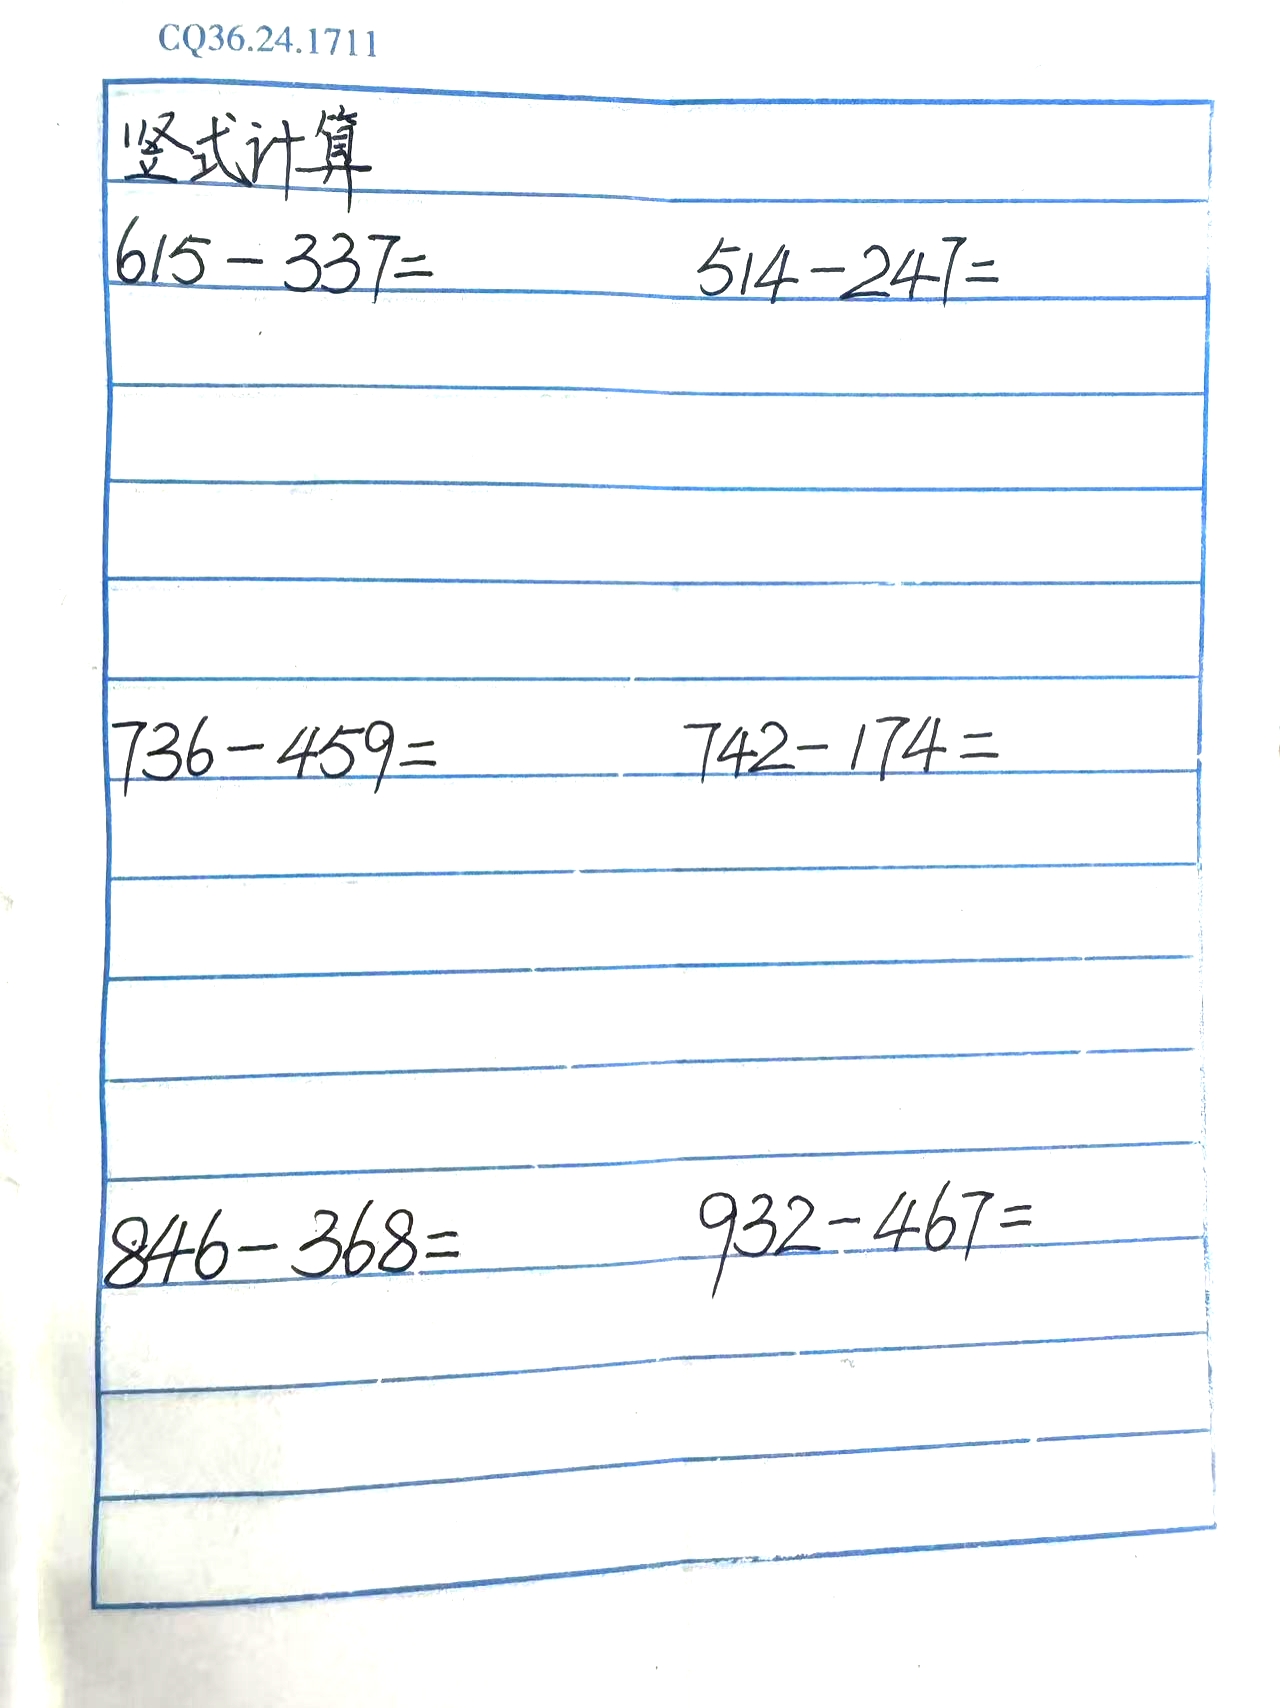 CQ36.24.1711
竖式计算
615-337= 514-247=
736-459= 742-174=
846-368= 932-467=